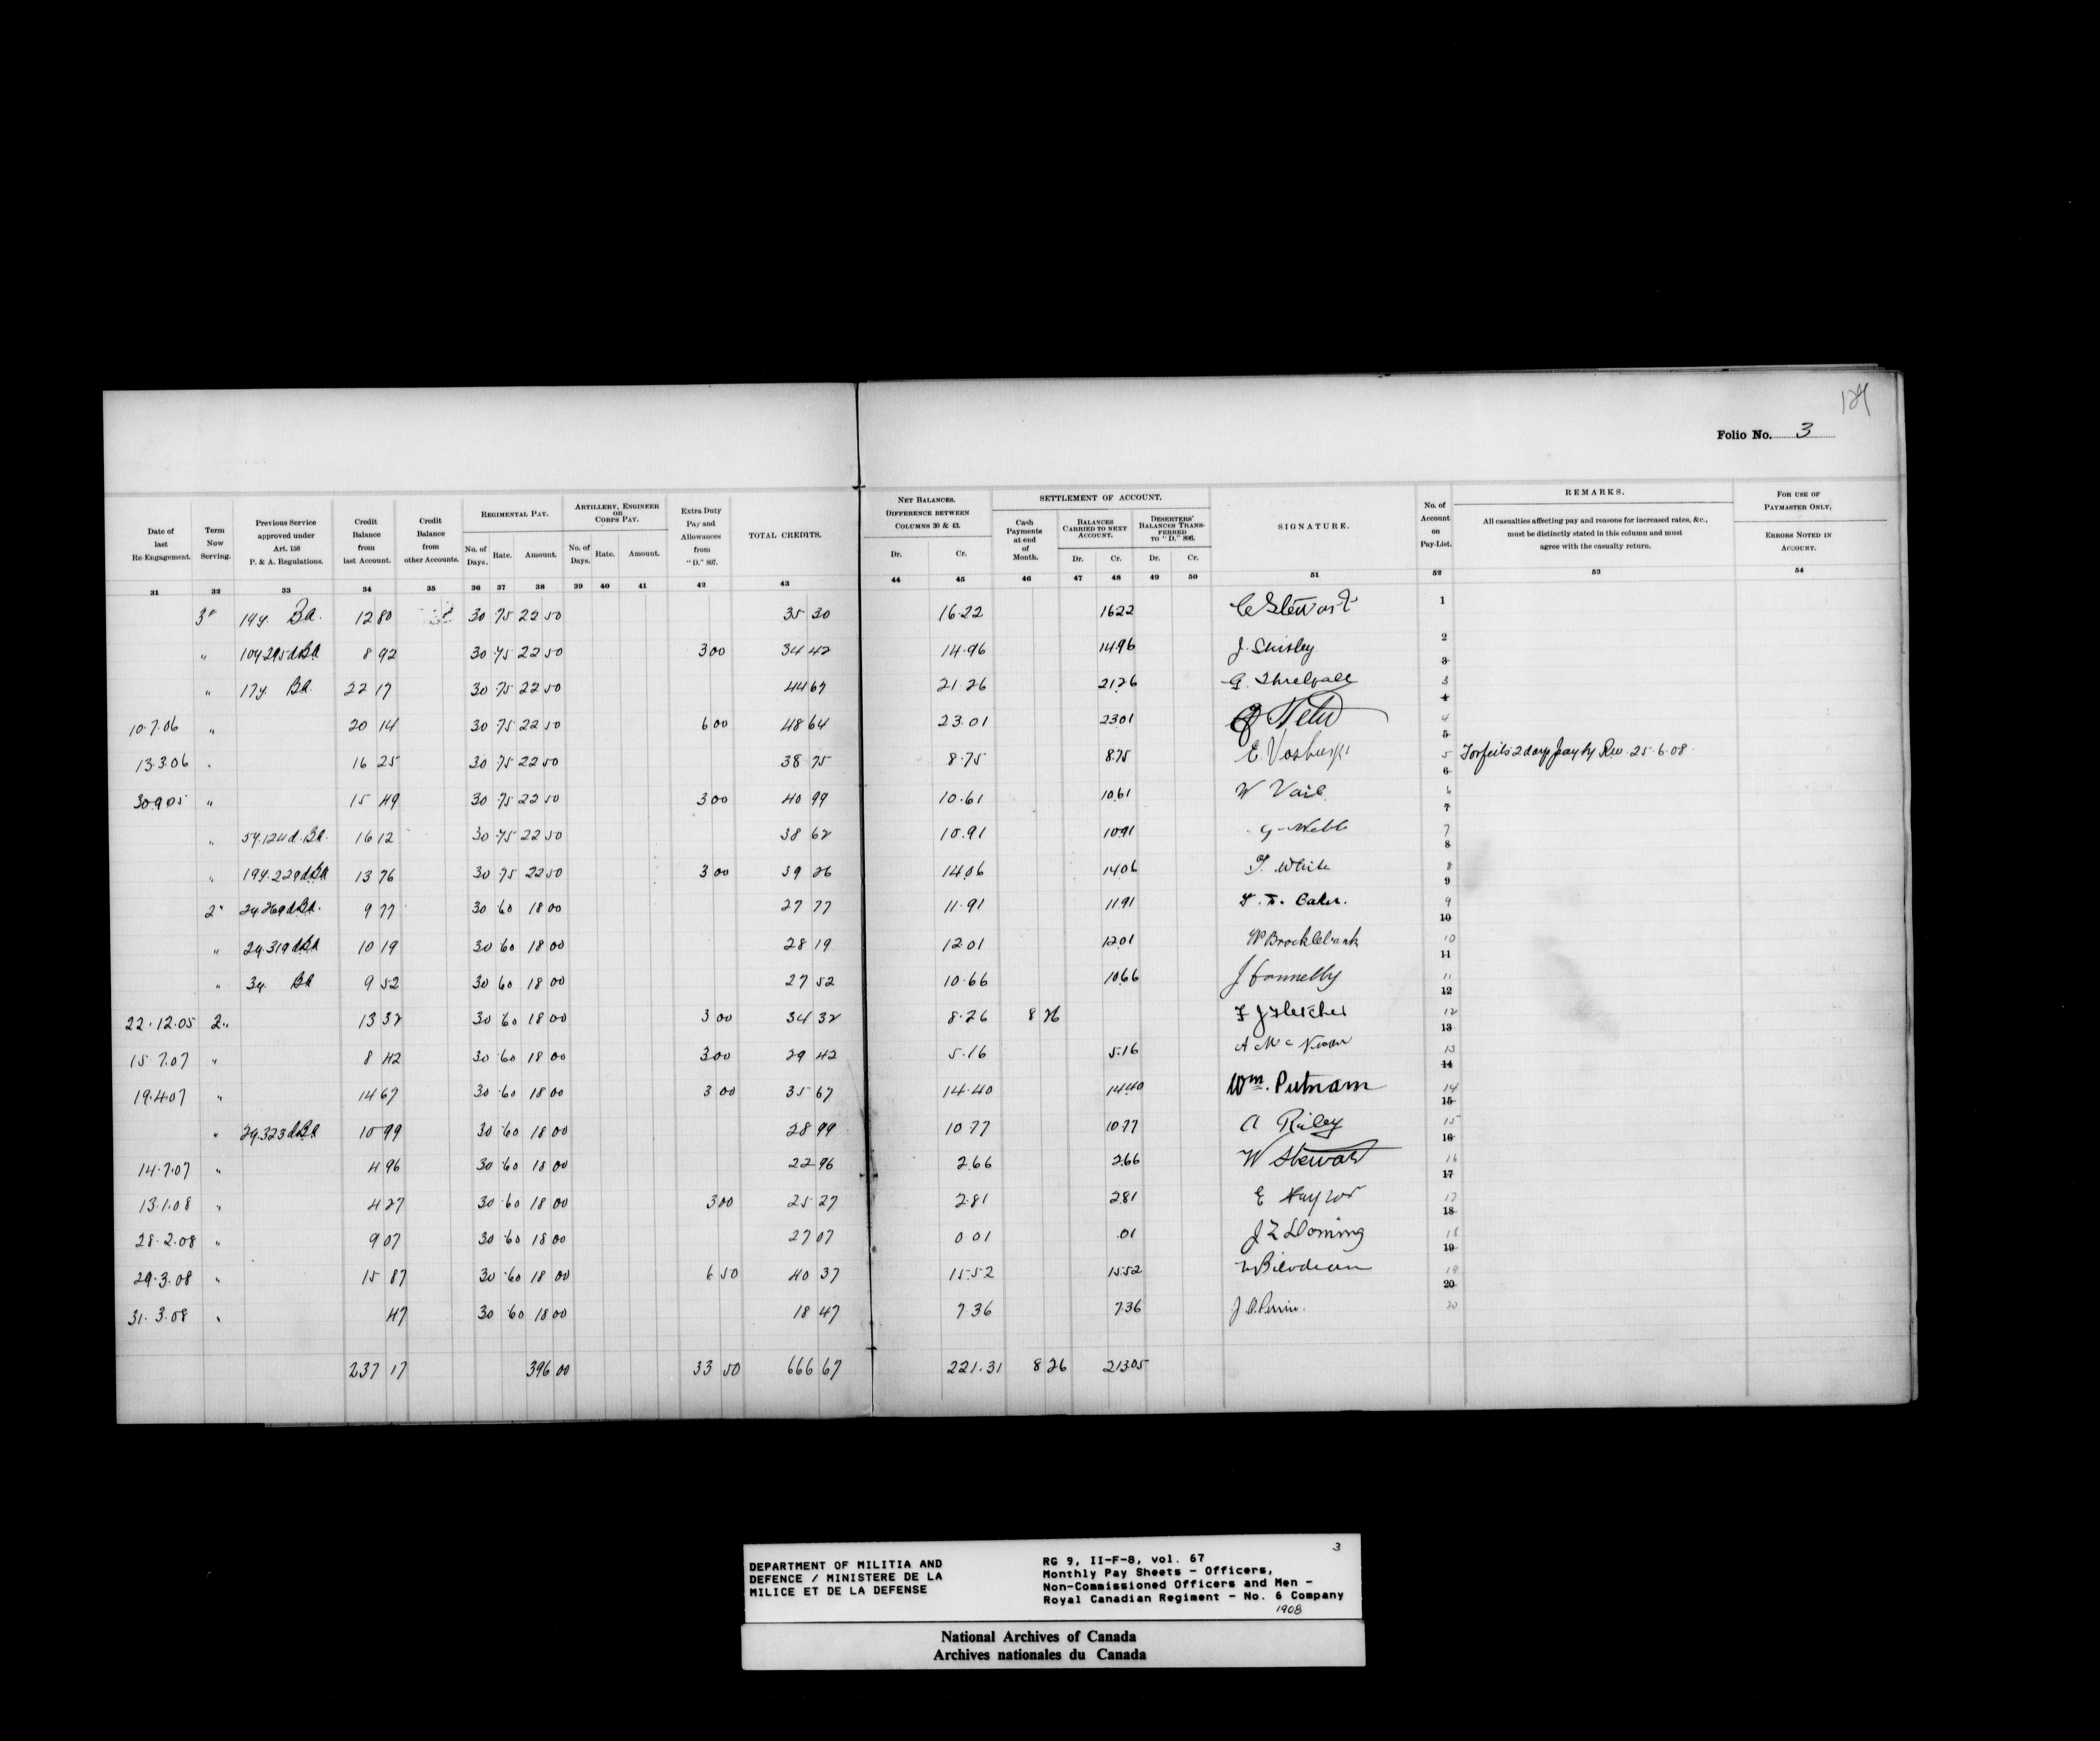 124
Folio No. 3
Date of last Re-Engagement. Term Now Serving. Previous Service approved under Art. 158 P. & A. Regulations. Credit Balance from last Account. Credit Balance from other Accounts. REGIMENTAL PAY. No. of Days. Rate. Amount. ARTILLERY, ENGINEER OR CORPS PAY. No. of Days. Rate. Amount. Extra Duty Pay and Allowances from "D." 807. TOTAL CREDITS.
NET BALANCES. DIFFERENCE BETWEEN COLUMNS 30 & 43. Dr. Cr. SETTLEMENT OF ACCOUNT. Cash Payments at end of Month. BALANCES CARRIED TO NEXT ACCOUNT. Dr. Cr. DESERTERS' BALANCES TRANSFERRED TO "D." 806. Dr. Cr. SIGNATURE. No. of Account on Pay-List. REMARKS. All casualties affecting pay and reasons for increased rates, &c., must be distinctly stated in this column and must agree with the casualty return. FOR USE OF PAYMASTER ONLY. ERRORS NOTED IN ACCOUNT.
31 32 33 34 35 36 37 38 39 40 41 42 43 44 45 46 47 48 49 50 51 52 53 54
3rd 19y. Ba. 12 80 30 75 22 50 35 30 16.22 16 22 C Stewart 1
" 10y 295d Ba 8 92 30 75 22 50 3 00 34 42 14.96 14 96 J. Shirley 2
" 17y. Ba. 22 17 30 75 22 50 44 67 21.26 21 26 G. Threlfall 3
10.7.06 " 20 14 30 75 22 50 6 00 48 64 23.01 23 01 4
13.3.06 " 16 25 30 75 22 50 38 75 8.75 8 75 E. Vosburgh 5 Forfeits 2 days pay by Rev. 25.6.08
30.9.05 " 15 49 30 75 22 50 3 00 40 99 10.61 10 61 W Vail 6
" 5y. 124d. Ba. 16 12 30 75 22 50 38 62 10.91 10 91 G Webb 7
" 19y. 229d Ba 13 76 30 75 22 50 3 00 39 26 14.06 14 06 T. White 8
2" 2y 269d Ba. 9 77 30 60 18 00 27 77 11.91 11 91 Baker. 9
" 2y. 319d Ba 10 19 30 60 18 00 28 19 12 01 12 01 W Brocklebank 10
" 3y. Ba 9 52 30 60 18 00 27 52 10.66 10 66 J Connelly 11
22.12.05 2" 13 32 30 60 18 00 3 00 34 32 8.26 8 26 F J Fletcher 12
15.7.07 " 8 42 30 60 18 00 3 00 29 42 5.16 5 16 13
19.4.07 " 14 67 30 60 18 00 3 00 35 67 14.40 14 40 Wm. Putnam 14
" 2y. 323d Ba 10 99 30 60 18 00 28 99 10 77 10 77 A Riley 15
14.7.07 " 4 96 30 60 18 00 22 96 2.66 2 66 W Stewart 16
13.1.08 " 4 27 30 60 18 00 3 00 25 27 2.81 2 81 17
28.2.08 " 9 07 30 60 18 00 27 07 0.01 .01 18
29.3.08 " 15 87 30 60 18 00 6 50 40 37 15.52 15 52 Bilodeau 19
31.3.08 " 47 30 60 18 00 18 47 7.36 7 36 J. A. Perrin. 20
237 17 396 00 33 50 666 67 221.31 8 26 213 05
3
DEPARTMENT OF MILITIA AND DEFENCE / MINISTERE DE LA MILICE ET DE LA DEFENSE
RG 9, II-F-8, vol. 67
Monthly Pay Sheets - Officers,
Non-Commissioned Officers and Men -
Royal Canadian Regiment - No. 6 Company
1908
National Archives of Canada
Archives nationales du Canada